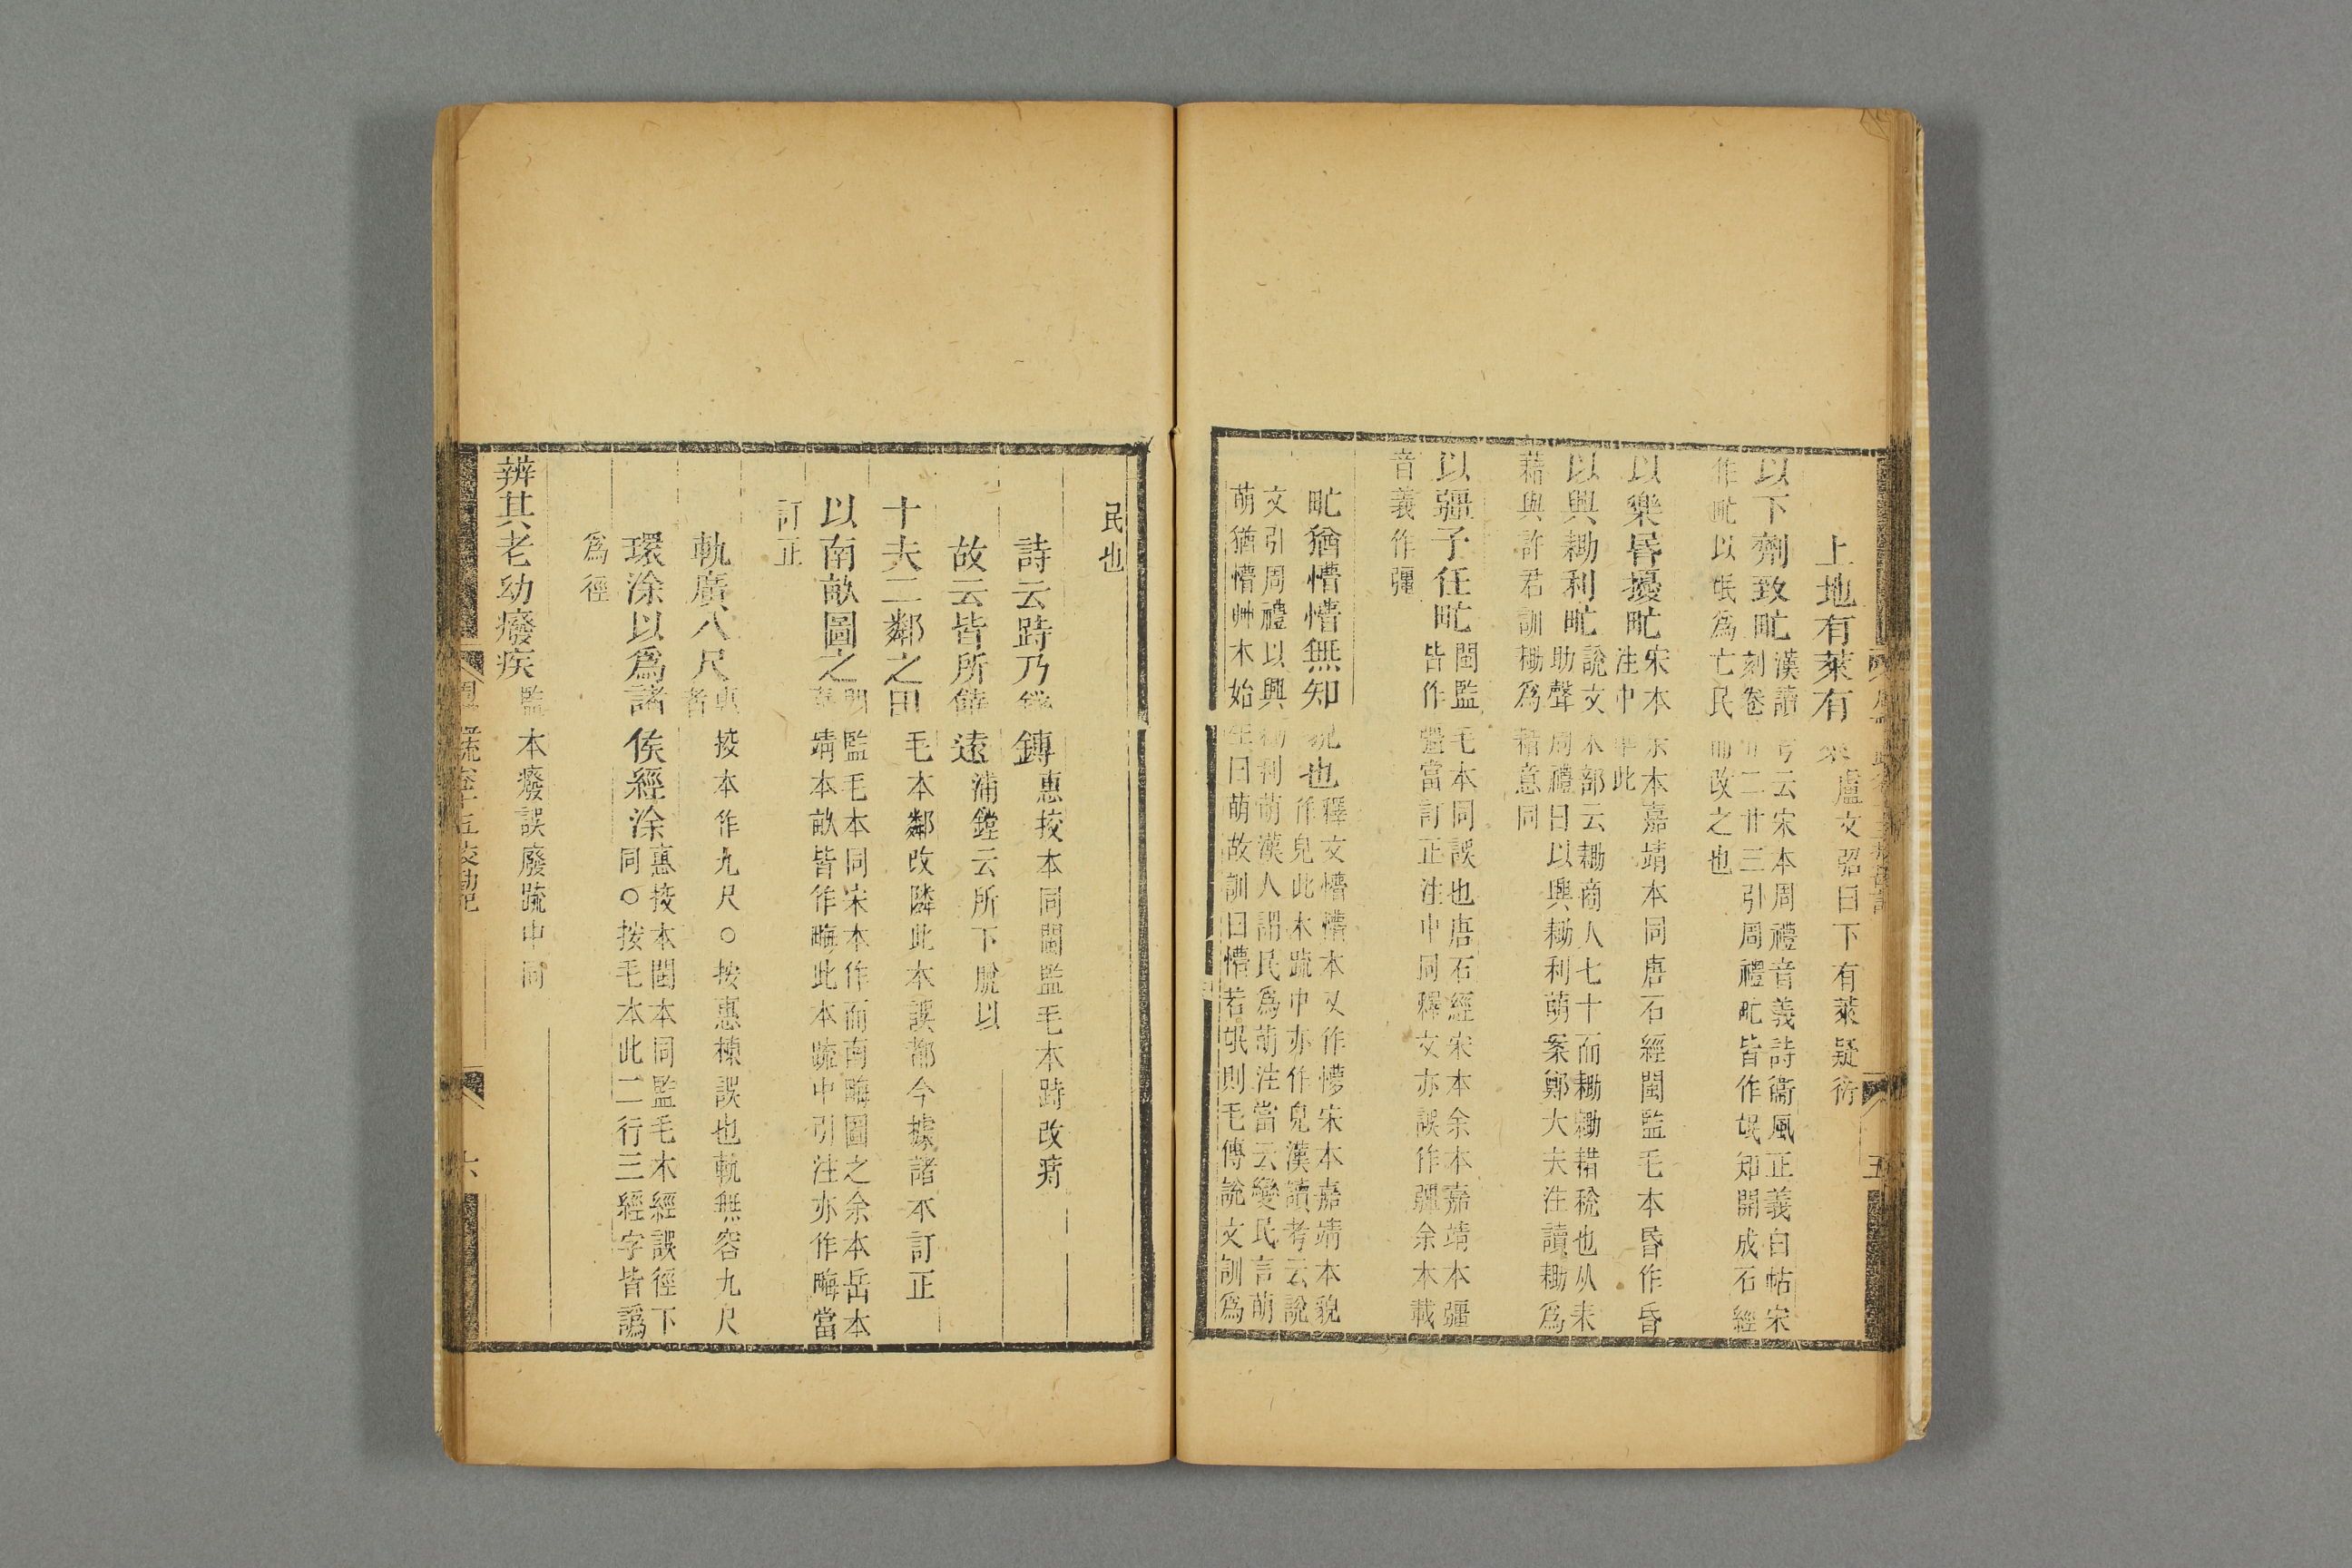 上地有萊有萊盧文弨曰下有萊疑衍
以下劑致甿漢讀考云宋本周禮音義詩衞風正義白帖宋
刻卷廿二廿三引周禮甿皆作氓知開成石經
作甿以氓爲亡民而改之也
以樂昬擾甿宋本余本嘉靖本同唐石經閩監毛本昬作昏
注中準此
以興耡利甿說文耒部云耡商人七十而耡耡耤稅也从耒
助聲周禮曰以興耡利萌案鄭大夫注讀耡爲
藉與許君訓耡爲耤意同
以彊予任甿閩監毛本同誤也唐石經宋本余本嘉靖本彊
皆作彊當訂正注中同釋文亦誤作疆余本載
音義作彊
甿猶懵懵無知皃也釋文懵懵本又作懜宋本嘉靖本貌
作皃此本疏中亦作皃漢讀考云說
文引周禮以興耡利萌漢人謂民爲萌注當云變民言萌
萌猶懵艸木始生曰萌故訓曰懵若氓則毛傳說文訓爲
民也
詩云跱乃錢鎛惠挍本同閩監毛本跱改痔
故云皆所饒遠浦鏜云所下脫以
十夫二鄰之田毛本鄰改隣此本誤都今據諸本訂正
以南畝圖之閩監毛本同宋本作而南畮圖之余本岳本
嘉靖本畝皆作畮此本疏中引注亦作畮當
訂正
軌廣八尺者惠挍本作九尺○按惠棟誤也軌無容九尺
環涂以爲諸侯經涂惠挍本閩本同監毛本經誤徑下
同○按毛本此二行三經字皆譌
爲徑
辨其老幼癈疾監本癈誤廢疏中同
六